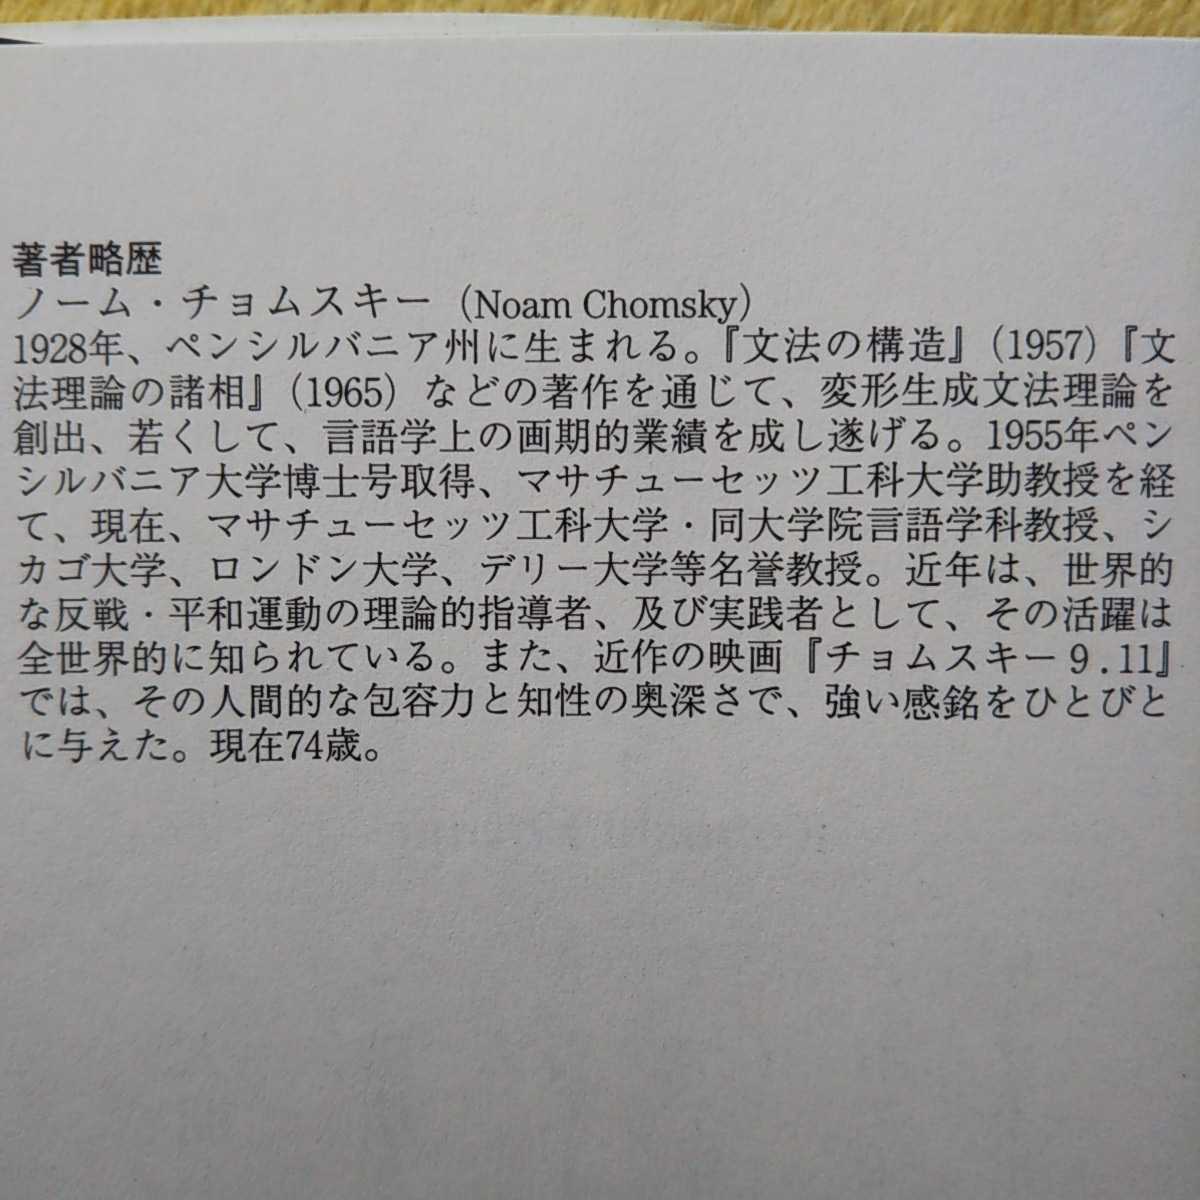 著者略歴
ノーム・チョムスキー（Noam Chomsky）
1928年、ペンシルバニア州に生まれる。『文法の構造』（1957）『文
法理論の諸相』（1965）などの著作を通じて、変形生成文法理論を
創出、若くして、言語学上の画期的業績を成し遂げる。1955年ペン
シルバニア大学博士号取得、マサチューセッツ工科大学助教授を経
て、現在、マサチューセッツ工科大学・同大学院言語学科教授、シ
カゴ大学、ロンドン大学、デリー大学等名誉教授。近年は、世界的
な反戦・平和運動の理論的指導者、及び実践者として、その活躍は
全世界的に知られている。また、近作の映画『チョムスキー9.11』
では、その人間的な包容力と知性の奥深さで、強い感銘をひとびと
に与えた。現在74歳。